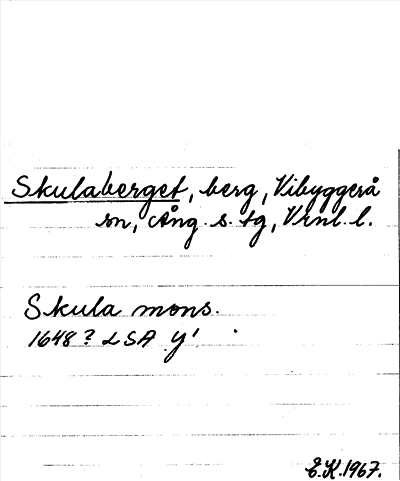 Skulaberget, berg, Vibyggerå
sn, Ång. s. tg, Vrnl. l.
Skula mons.
1648? LSA Y¹
E.K. 1967.